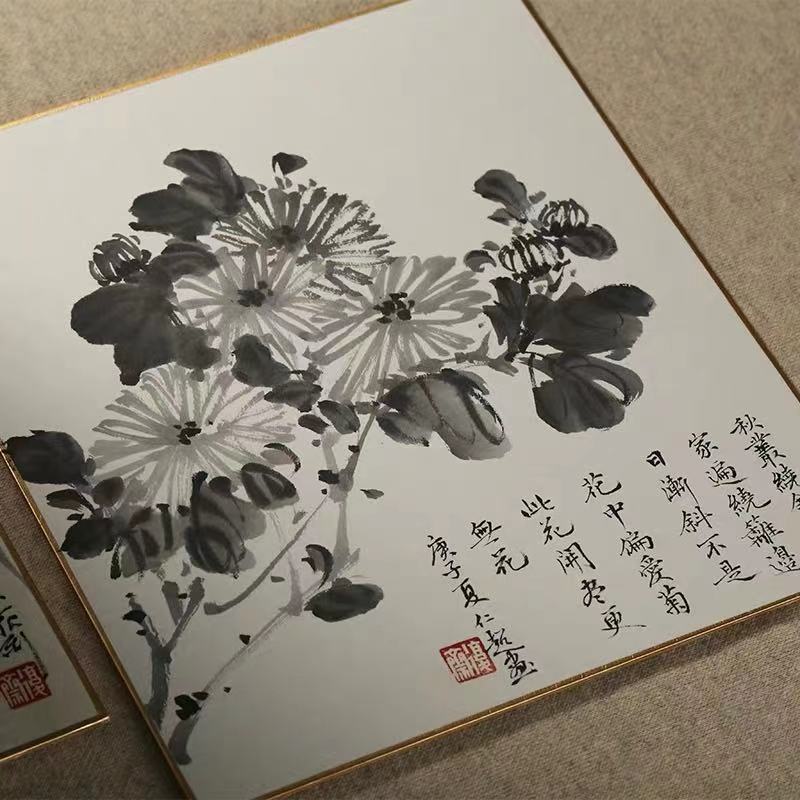 秋叢繞
家遍繞籬邊
日漸斜不是
花中偏愛菊
此花開尽更
無花
庚子夏仁超畫